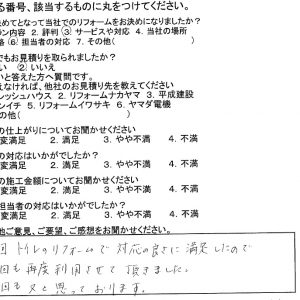 る番号、該当するものに丸をつけてください。
決めてとなって当社でのリフォームをお決めになりましたか?
ラン内容 2. 評判 3 サービスや対応 4. 当社の場所
格 6 担当者の対応 7. その他(
でもお見積りを取られましたか?
い ② いいえ
いと答えた方へ質問です。
えなければ、他社のお見積り先を教えてください
レッシュハウス 2. リフォームナカヤマ 3. 平成建設
ンイチ 5. リフォームイワサキ 6. ヤマダ電機
の他(
の仕上がりについてお聞かせください
変満足 2. 満足 3. やや不満 4. 不満
の対応はいかがでしたか?
変満足 2. 満足 3. やや不満 4. 不満
の施工金額についてお聞かせください
変満足 2. 満足 3. やや不満 4. 不満
担当者の対応はいかがでしたか?
変満足 2. 満足 3. やや不満 4. 不満
他ご意見、ご要望、ご感想をお聞かせください
回 トイレのリフォームで 対応の良さに満足したので
回も 再度 利用させて 頂きました。
回も 又 と 思って おります。